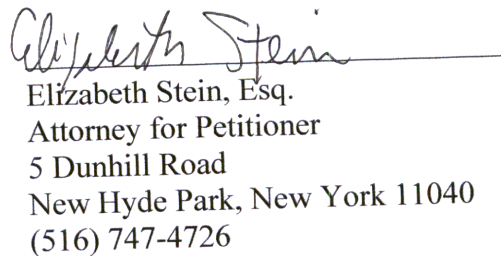 Elizabeth Stein
Elizabeth Stein, Esq.
Attorney for Petitioner
5 Dunhill Road
New Hyde Park, New York 11040
(516) 747-4726